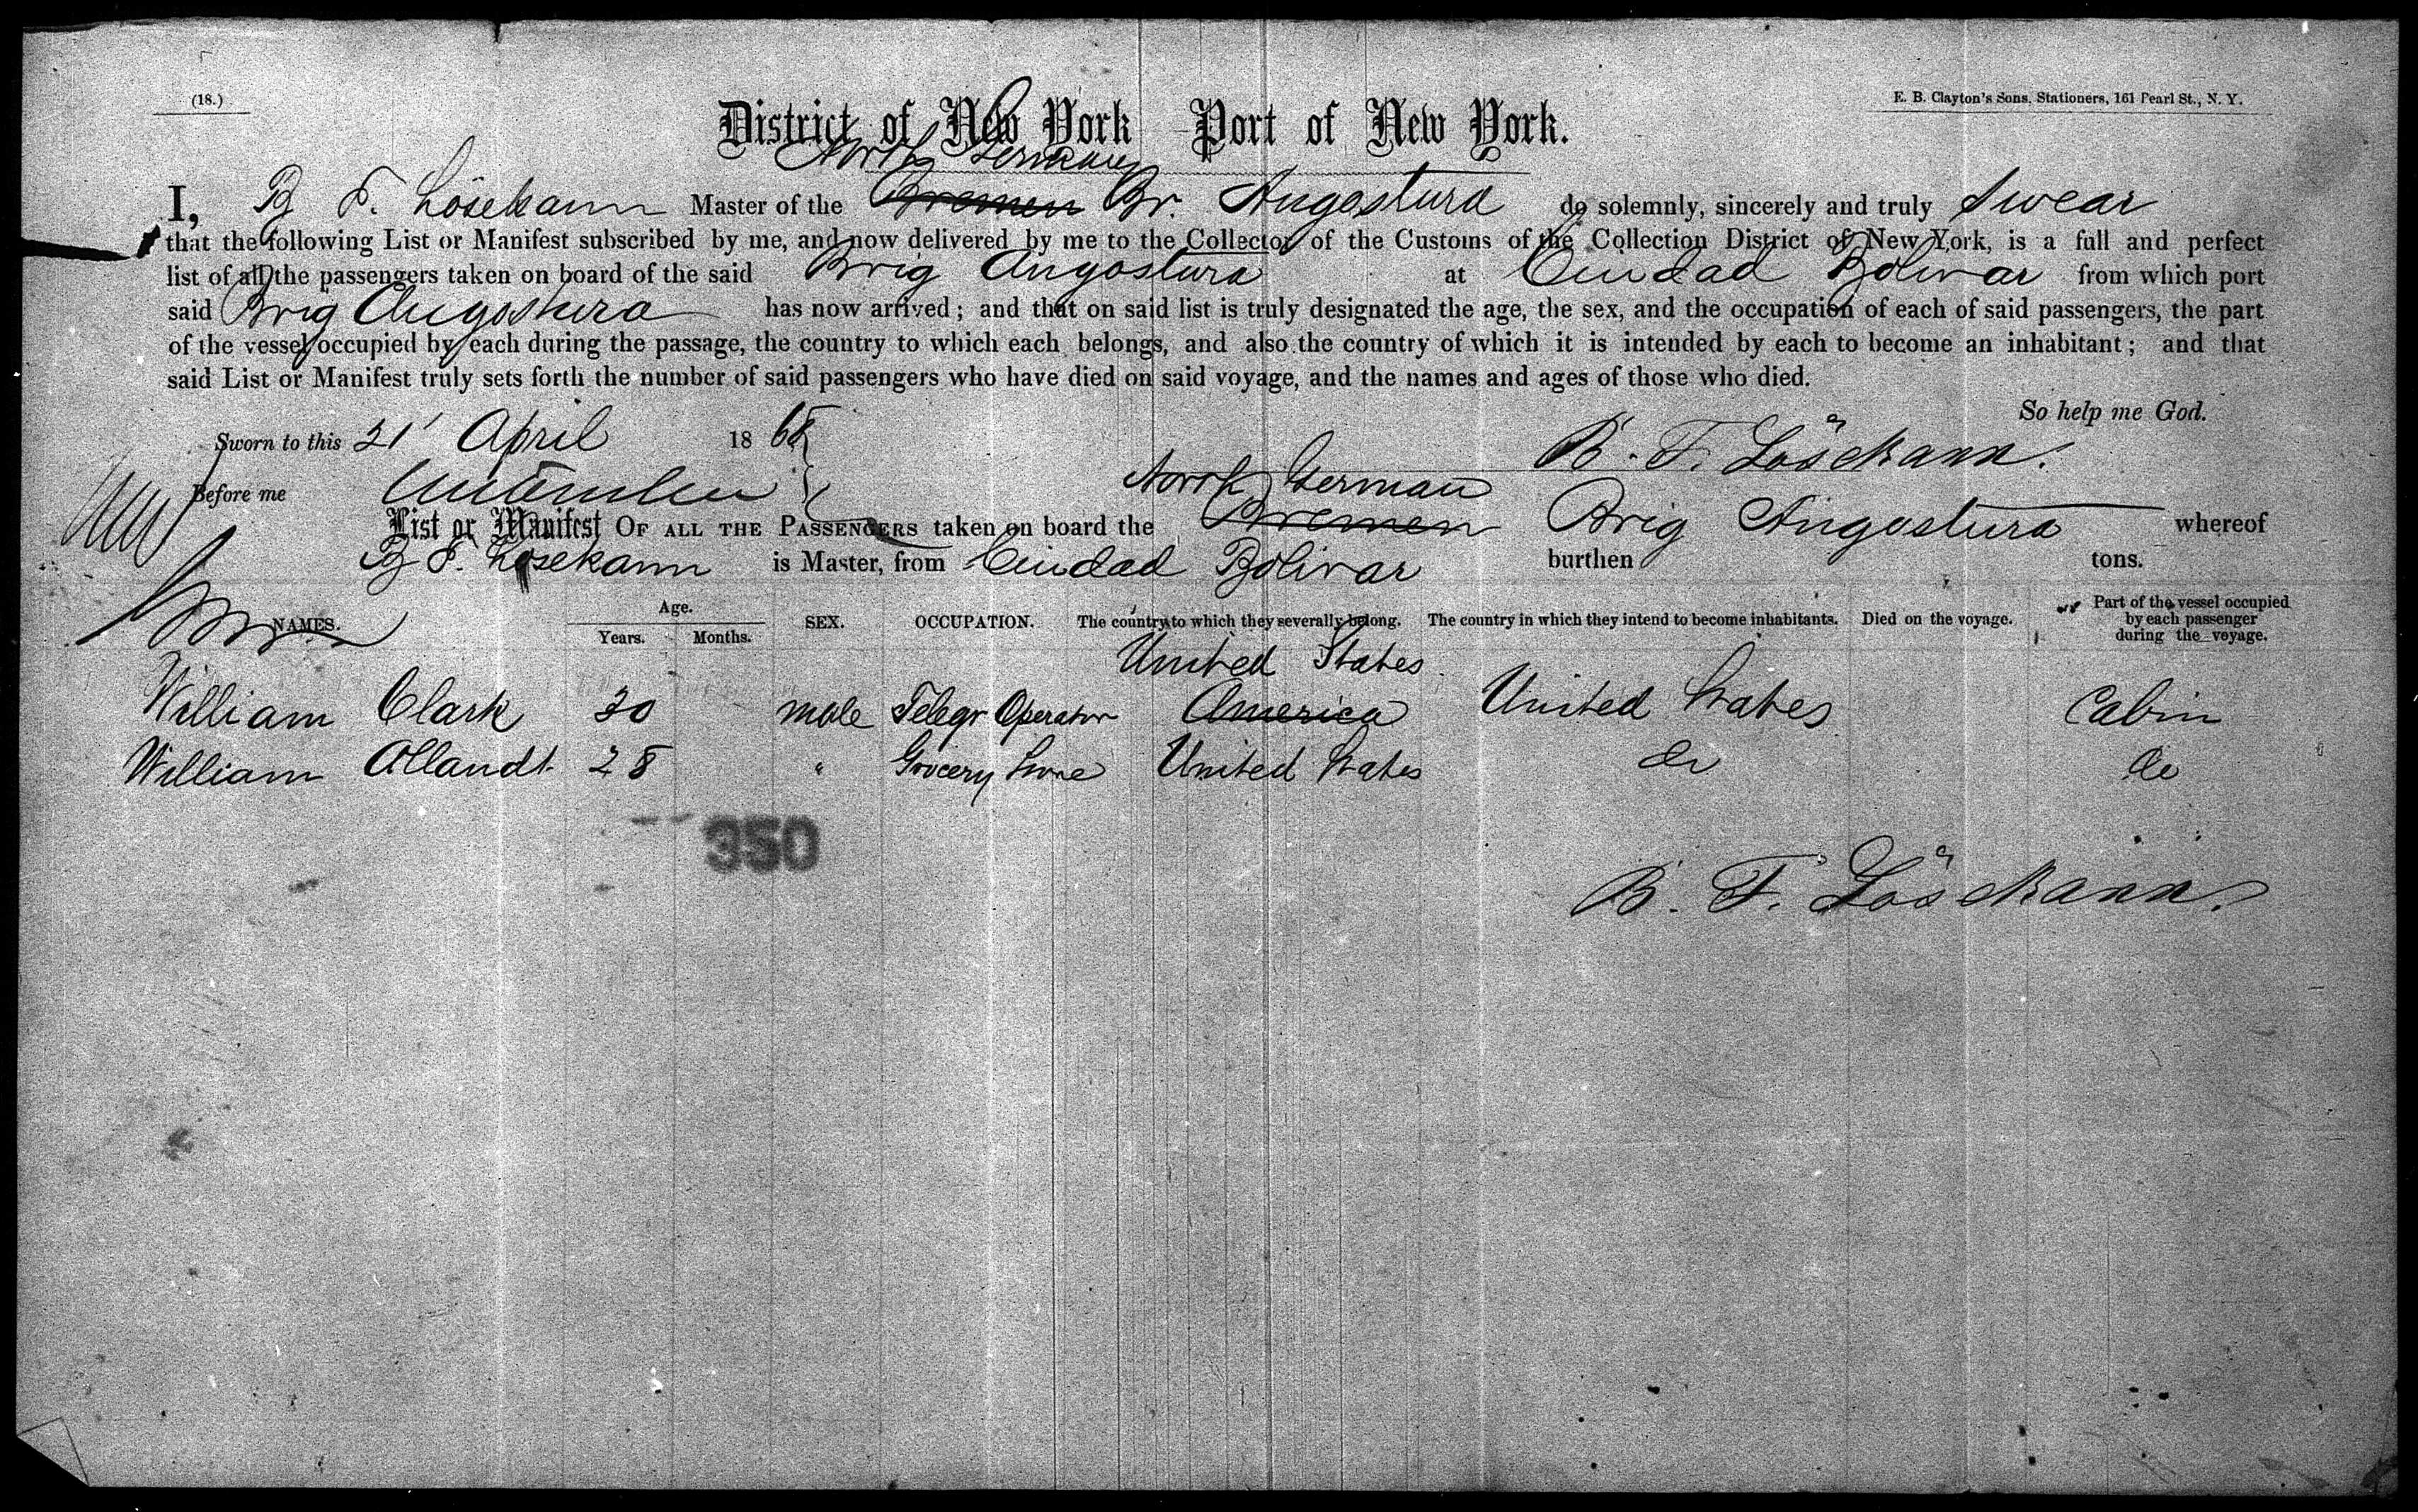 (18.)
E. B. Clayton's Sons, Stationers, 161 Pearl St., N. Y.
District of New York Port of New York.
North German
I, B F. Lösekann Master of the Bremen Br. Angostura do solemnly, sincerely and truly swear
that the following List or Manifest subscribed by me, and now delivered by me to the Collector of the Customs of the Collection District of New York, is a full and perfect
list of all the passengers taken on board of the said Brig Angostura at Ciudad Bolivar from which port
said Brig Angostura has now arrived; and that on said list is truly designated the age, the sex, and the occupation of each of said passengers, the part
of the vessel occupied by each during the passage, the country to which each belongs, and also the country of which it is intended by each to become an inhabitant; and that
said List or Manifest truly sets forth the number of said passengers who have died on said voyage, and the names and ages of those who died.
So help me God.
Sworn to this 21 April 1868
B. F. Lösekann.
Before me
North German
List or Manifest OF ALL THE PASSENGERS taken on board the Bremen Brig Angostura whereof
B F. Lösekann is Master, from Ciudad Bolivar burthen tons.
NAMES. Age. Years. Months. SEX. OCCUPATION. The country to which they severally belong. The country in which they intend to become inhabitants. Died on the voyage. Part of the vessel occupied by each passenger during the voyage.
United States
William Clark 30 male Telegr Operator America United States Cabin
William Allandt 28 " Grocery Store United States do do
350
B. F. Lösekann.